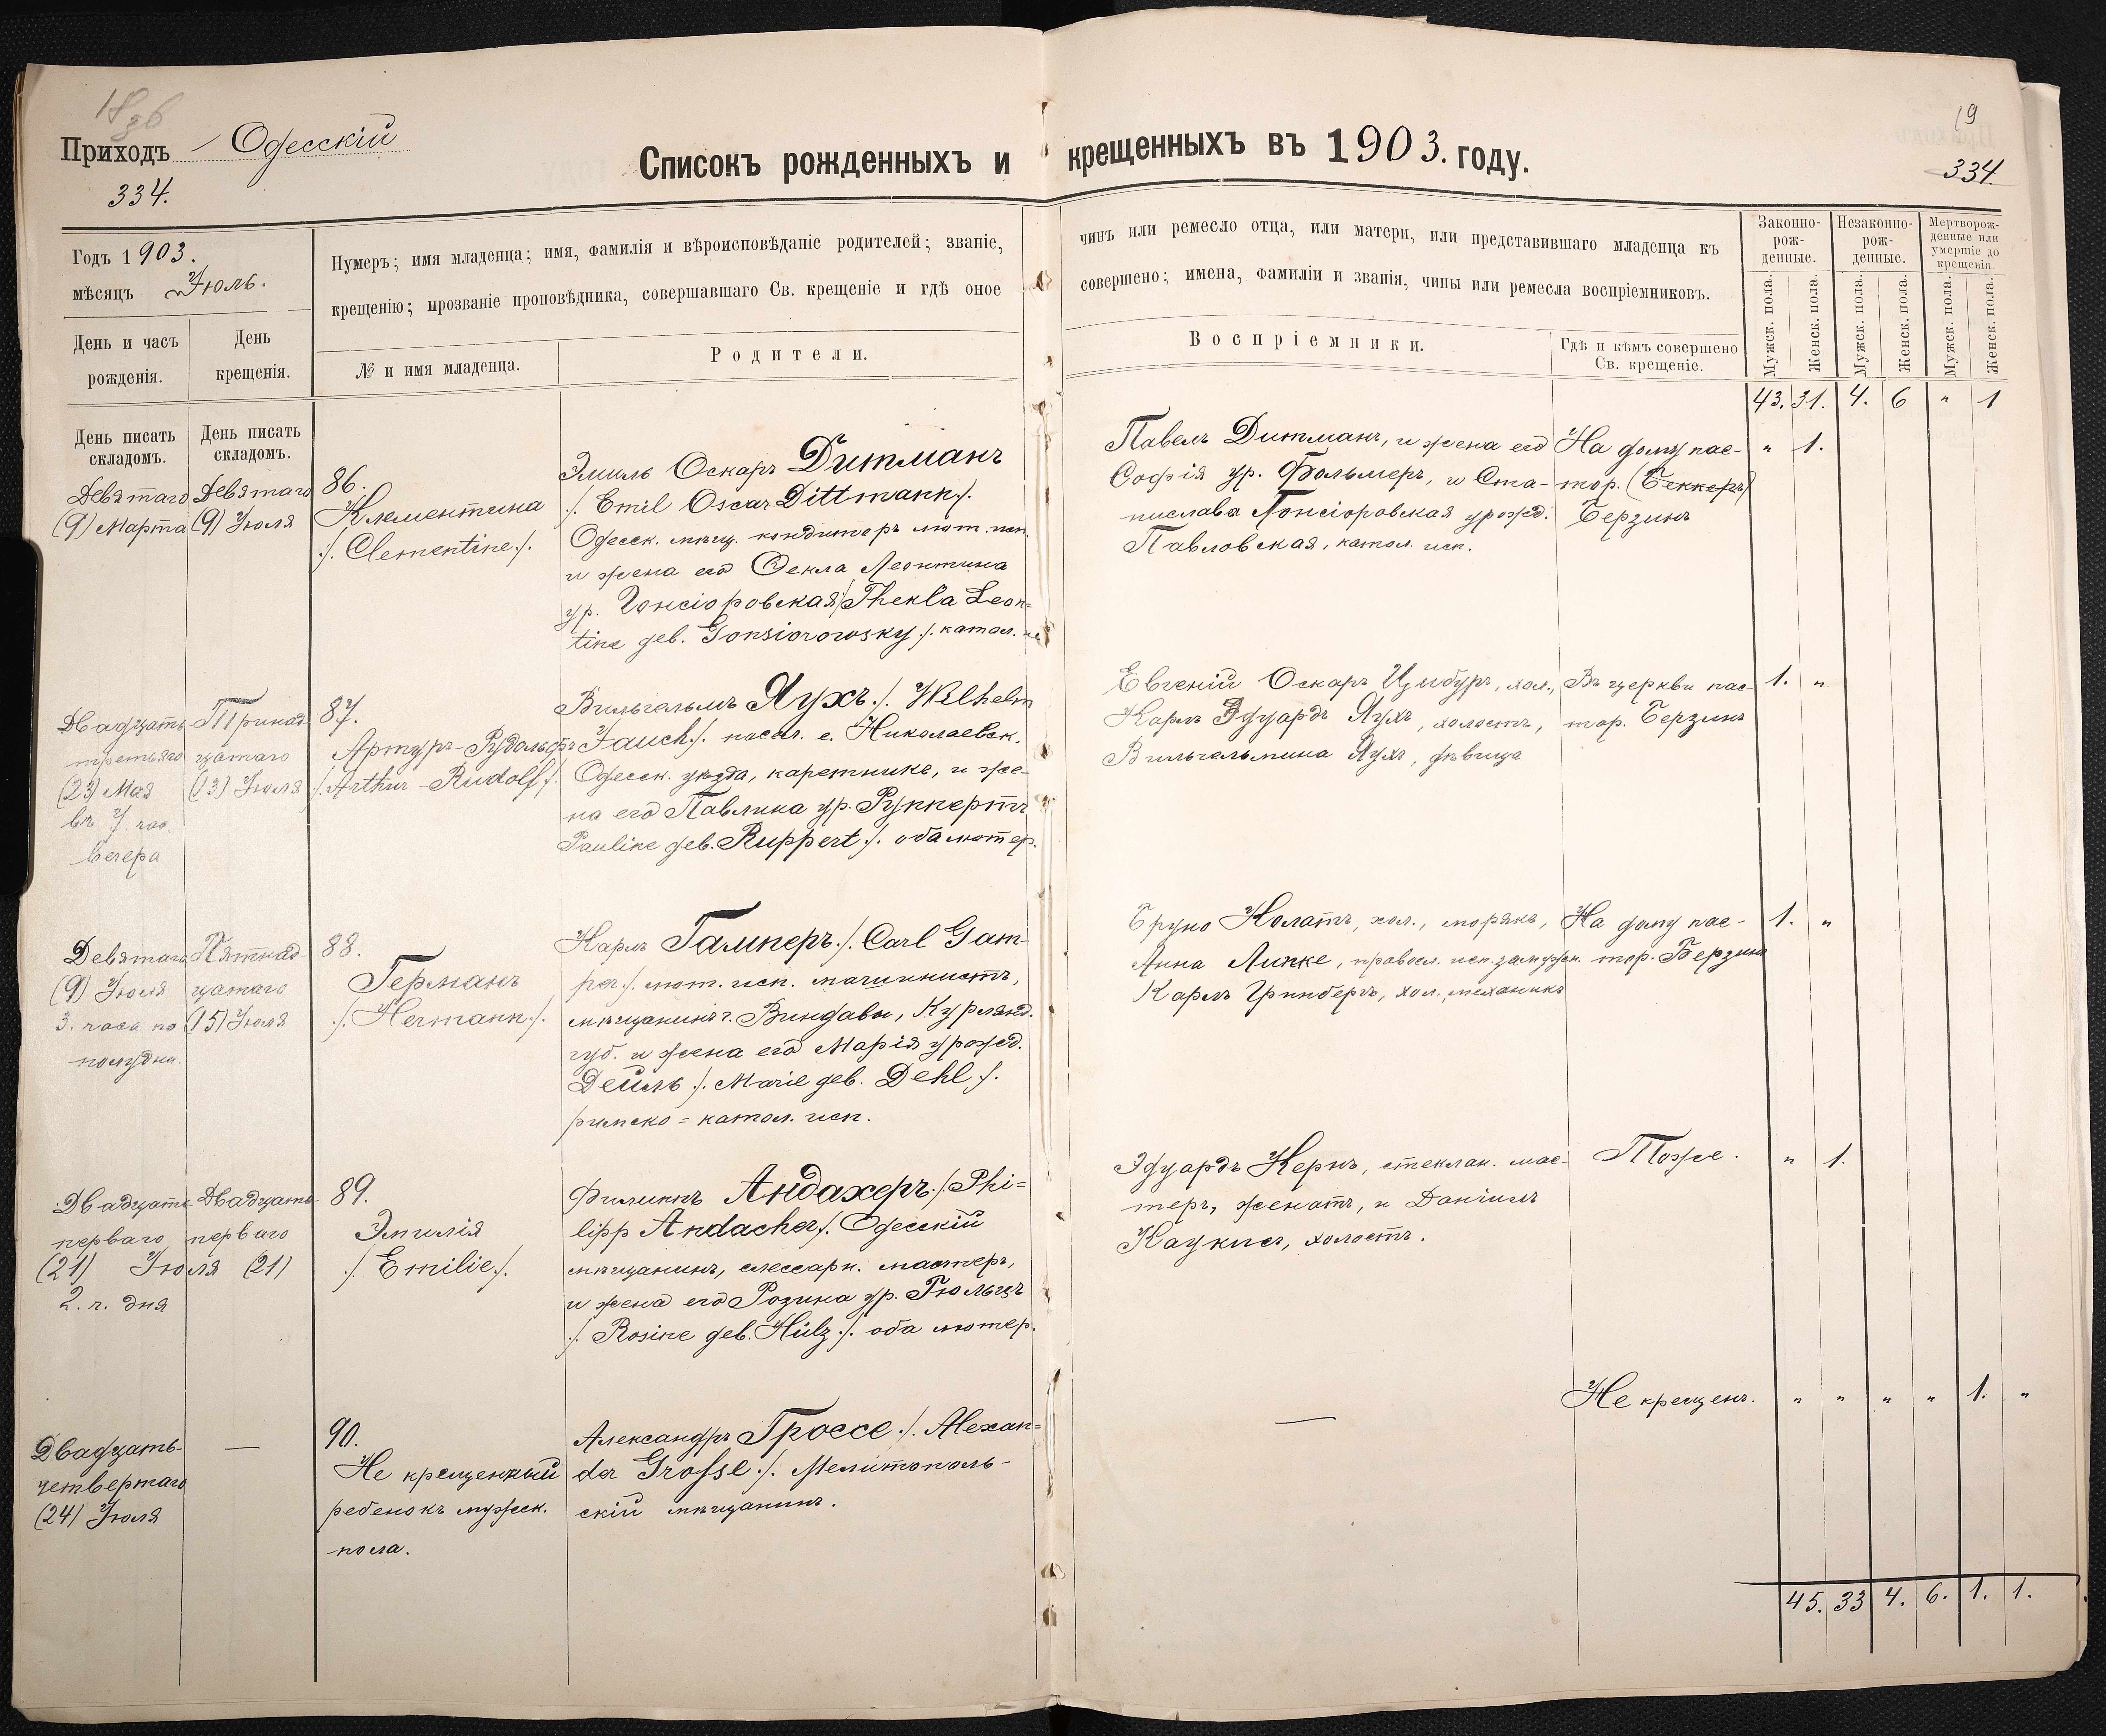 18 зв
Приходъ Одесскій
334.
Списокъ рожденныхъ и крещенныхъ въ 1903. году.
19
334.
Годъ 1903.
мѣсяцъ Іюль.
День и часъ рожденія.
День крещенія.
Нумеръ; имя младенца; имя, фамилія и вѣроисповѣданіе родителей; званіе, чинъ или ремесло отца, или матери, или представившаго младенца къ
крещенію; прозваніе проповѣдника, совершавшаго Св. крещеніе и гдѣ оное совершено; имена, фамиліи и званія, чины или ремесла воспріемниковъ.
№ и имя младенца.
Родители.
Воспріемники.
Гдѣ и кѣмъ совершено
Св. крещеніе.
Законно-
рож-
денные.
Незаконно-
рож-
денные.
Мертворож-
денные или
умершіе до
крещенія.
Мужск. пола.
Женск. пола.
Мужск. пола.
Женск. пола.
Мужск. пола.
Женск. пола.
43. 31. 4. 6 " 1
День писать
складомъ.
День писать
складомъ.
Девятаго
(9) Марта
Девятаго
(9) Іюля
86.
Клементина
./. Clementine ./.
Эмиль Оскаръ Дитманъ
./. Emil Oscar Dittmann ./.
Одесск. мѣщ. кондиторъ лют. исп.
и жена его Фекла Леонтина
ур. Гонсіоровская / Thekla Leon=
tine geb. Gonsiorowsky ./. катол.
Павелъ Дитманъ, и жена его
Софія ур. Фольмеръ, и Ста-
нислава Гонсіоровская урожд.
Павловская, катол. исп.
На дому пас-
тор. (Беккеръ)
Берзинъ
" 1.
Двадцать
третьяго
(23) Мая
въ 7 час.
вечера
Тринад-
цатаго
(13) Іюля
87.
Артуръ-Рудольфъ
./. Arthur-Rudolf ./.
Вильгельмъ Яухъ ./. Wilhelm
Jauch ./. посел. с. Николаевск.
Одесск. уѣзда, каретникъ, и же-
на его Павлина ур. Руппертъ
Pauline geb. Ruppert ./. оба лютер.
Евгеній Оскаръ Цибуръ, хол.,
Карлъ Эдуардъ Яухъ, холостъ,
Вильгельмина Яухъ, дѣвица
Въ церкви пас-
тор. Берзинъ
1. "
Девятаго
(9) Іюля
3. часа по
полудни.
Пятнад-
цатаго
(15) Іюля
88.
Германъ
./. Hermann ./.
Карлъ Гамперъ ./. Carl Gam-
per ./. лют. исп. машинистъ,
мѣщанинъ г. Виндавы, Курлянд.
губ. и жена его Марія урожд.
Дейль ./. Marie geb. Dehl ./.
римско=катол. исп.
Бруно Нолатъ, хол., морякъ,
Анна Липке, правосл. исп. замужн.
Карлъ Гринбергъ, хол. механикъ
На дому пас-
тор. Берзинъ
1. "
Двадцать
перваго
(21) Іюля
2. ч. дня
Двадцать
перваго
(21)
89.
Эмилія
./. Emilie ./.
Филиппъ Андахеръ ./. Phi=
lipp Andacher ./. Одесскій
мѣщанинъ, слесарн. мастеръ,
и жена его Розина ур. Гюльцъ
./. Rosine geb. Hülz ./. оба лютер.
Эдуардъ Кернъ, стеклан. мас-
теръ, женатъ, и Даніилъ
Каукис, холостъ.
Тоже.
" 1.
Двадцать-
четвертаго
(24) Іюля
—
90.
Не крещенный
ребенокъ мужск.
пола.
Александръ Гроссе ./. Alexan=
der Grosse ./. Мелитополь-
скій мѣщанинъ.
—
Не крещенъ.
" " " " 1. "
45. 33 4. 6. 1. 1.